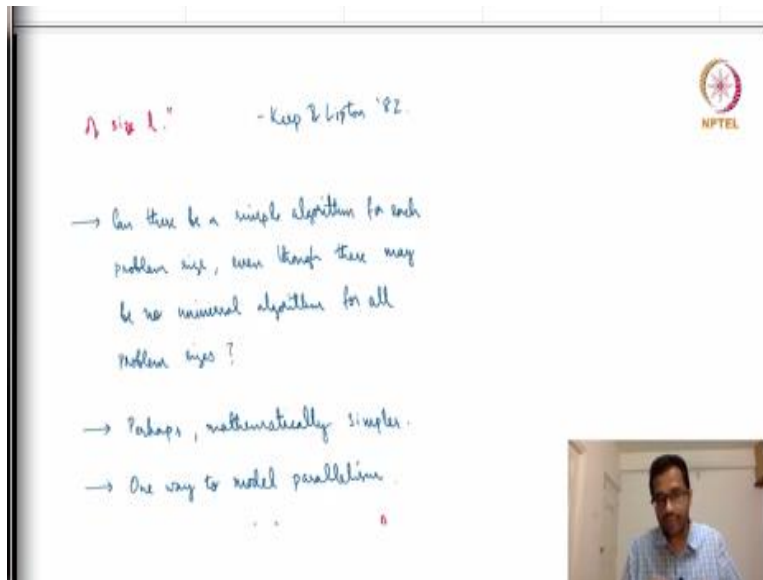 of size l."
- Karp & Lipton '82.
NPTEL
→ Can there be a simple algorithm for each
problem size, even though there may
be no universal algorithm for all
problem sizes?
→ Perhaps, mathematically simpler.
→ One way to model parallelism.